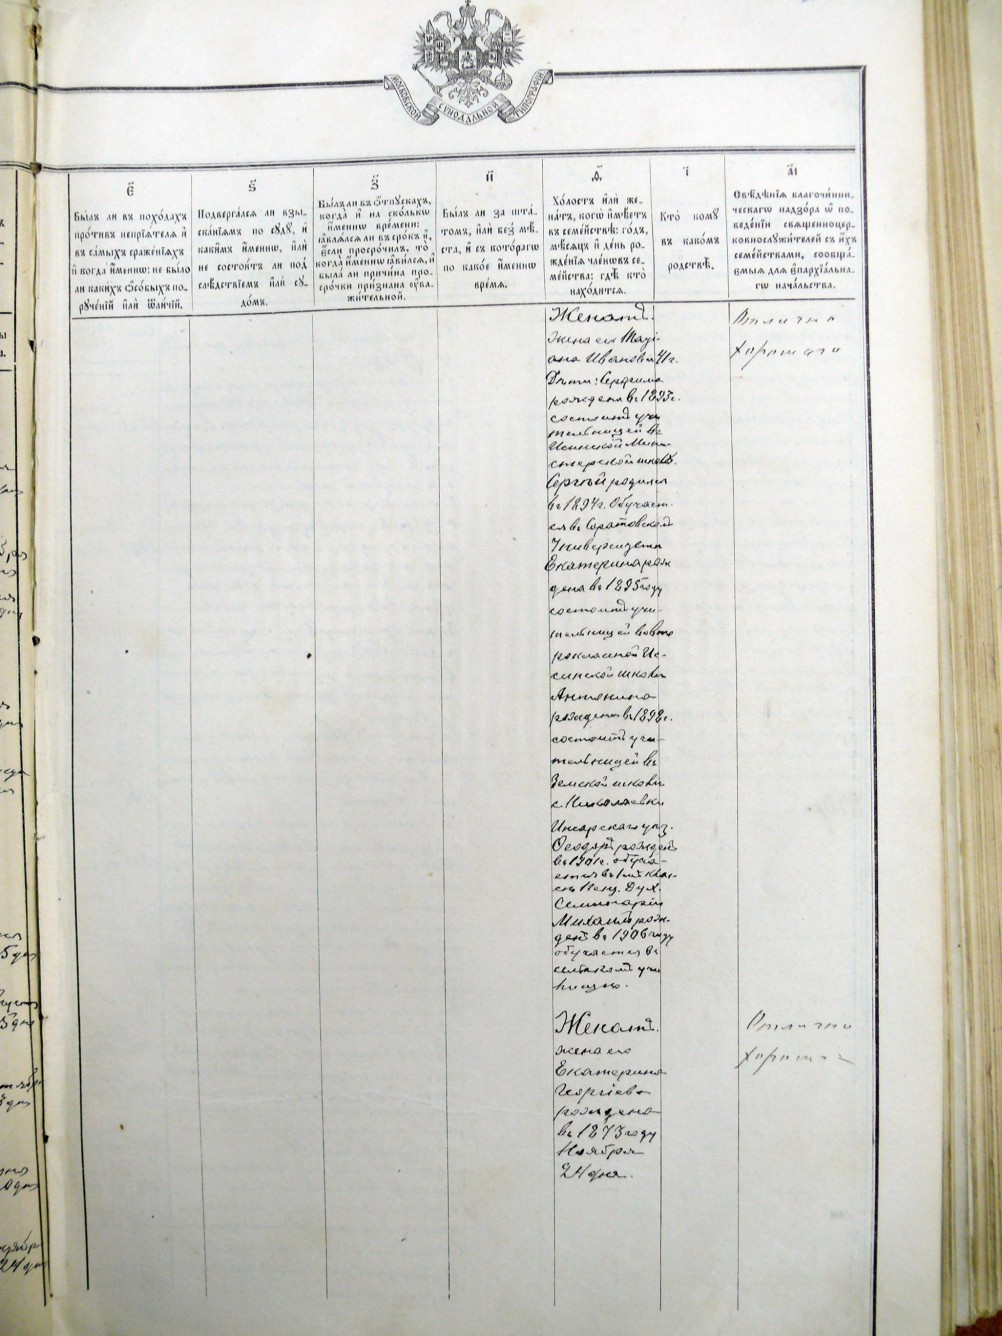 МОСКОВСКОЙ СѴНОДАЛЬНОЙ ТИПОГРАФІИ
є҃
Бы́лъ ли въ похо́дахъ
про́тивъ непрїѧ́телѧ и҆
въ са́мыхъ сраже́нїѧхъ
и҆ когда̀ и҆́менно; не бы́ло
ли каки́хъ ѻ҆со́быхъ по-
руче́нїй и҆лѝ ѿли́чїй.
ѕ҃
Подверга́лсѧ ли взы-
ска́нїѧмъ по сꙋдꙋ̀, и҆
каки́мъ и҆́менно, и҆лѝ
не состои́тъ ли под̾
слѣ́дствїемъ и҆лѝ сꙋ-
до́мъ.
з҃
Бы́лъ ли въ ѿпꙋска́хъ,
когда̀ и҆ на ско́лькѡ
и҆́менно вре́мени;
ꙗ҆влѧ́лсѧ ли въ сро́къ и҆,
є҆́сли просро́чилъ, то
когда̀ и҆́менно ꙗ҆ви́лсѧ, и҆
была́ ли причи́на про-
сро́чки при́знана ᲂу҆ва-
жи́тельной.
и҃
Бы́лъ ли за шта́-
томъ, и҆лѝ без̾ мѣ́-
ста, и҆ съ кото́рагѡ
по како́е и҆́менно
вре́мѧ.
ѳ҃
Хо́лостъ и҆лѝ же-
на́тъ, когѡ̀ и҆мѣ́етъ
въ семе́йствѣ; го́дъ,
мѣ́сѧцъ и҆ де́нь ро-
жде́нїѧ чле́нѡвъ се-
ме́йства; гдѣ̀ кто̀
нахо́дитсѧ.
і҃
Кто̀ комꙋ̀
въ како́мъ
родствѣ̀.
а҃і
Свѣ́дѣнїѧ благочи́нни-
ческагѡ надзо́ра ѡ҆ по-
веде́нїи свѧщенноцер-
ковнослꙋжи́телей съ и҆́хъ
семе́йствами, сообща́-
ємыѧ длѧ є҆пархїа́льна-
гѡ нача́льства.
Женатъ.
жена его Мар-
Ивановна 41 г.
Дѣти: Серафима
рождена въ 1893 г.
состоитъ учи-
тельницей въ
Иссинской Мини-
стерской школѣ.
Сергѣй родился
въ 1894 г. Обучает-
ся въ Саратовской
Университетѣ
Екатерина рож
дена въ 1895 году
состоитъ учи-
тельницей во вто
роклассной Ис-
синской школѣ
Антонина
рождена въ 1898 г.
состоитъ учи-
тельницей въ
Земской школѣ
с. Николаевки
Инсарскаго уѣз.
Ѳеодоръ рожденъ
въ 1901 г. обуча-
ется въ 1мъ клас-
сѣ Пенз. Дух.
Семинаріи
Михаилъ рож-
денъ въ 1906 году
обучается въ
сельскомъ учи
лищѣ.
Отлично
хорошаго
Женатъ.
жена его
Екатерина
Георгіева
рождена
въ 1873 году
Ноября
24 дня.
Отлично
хорошаго